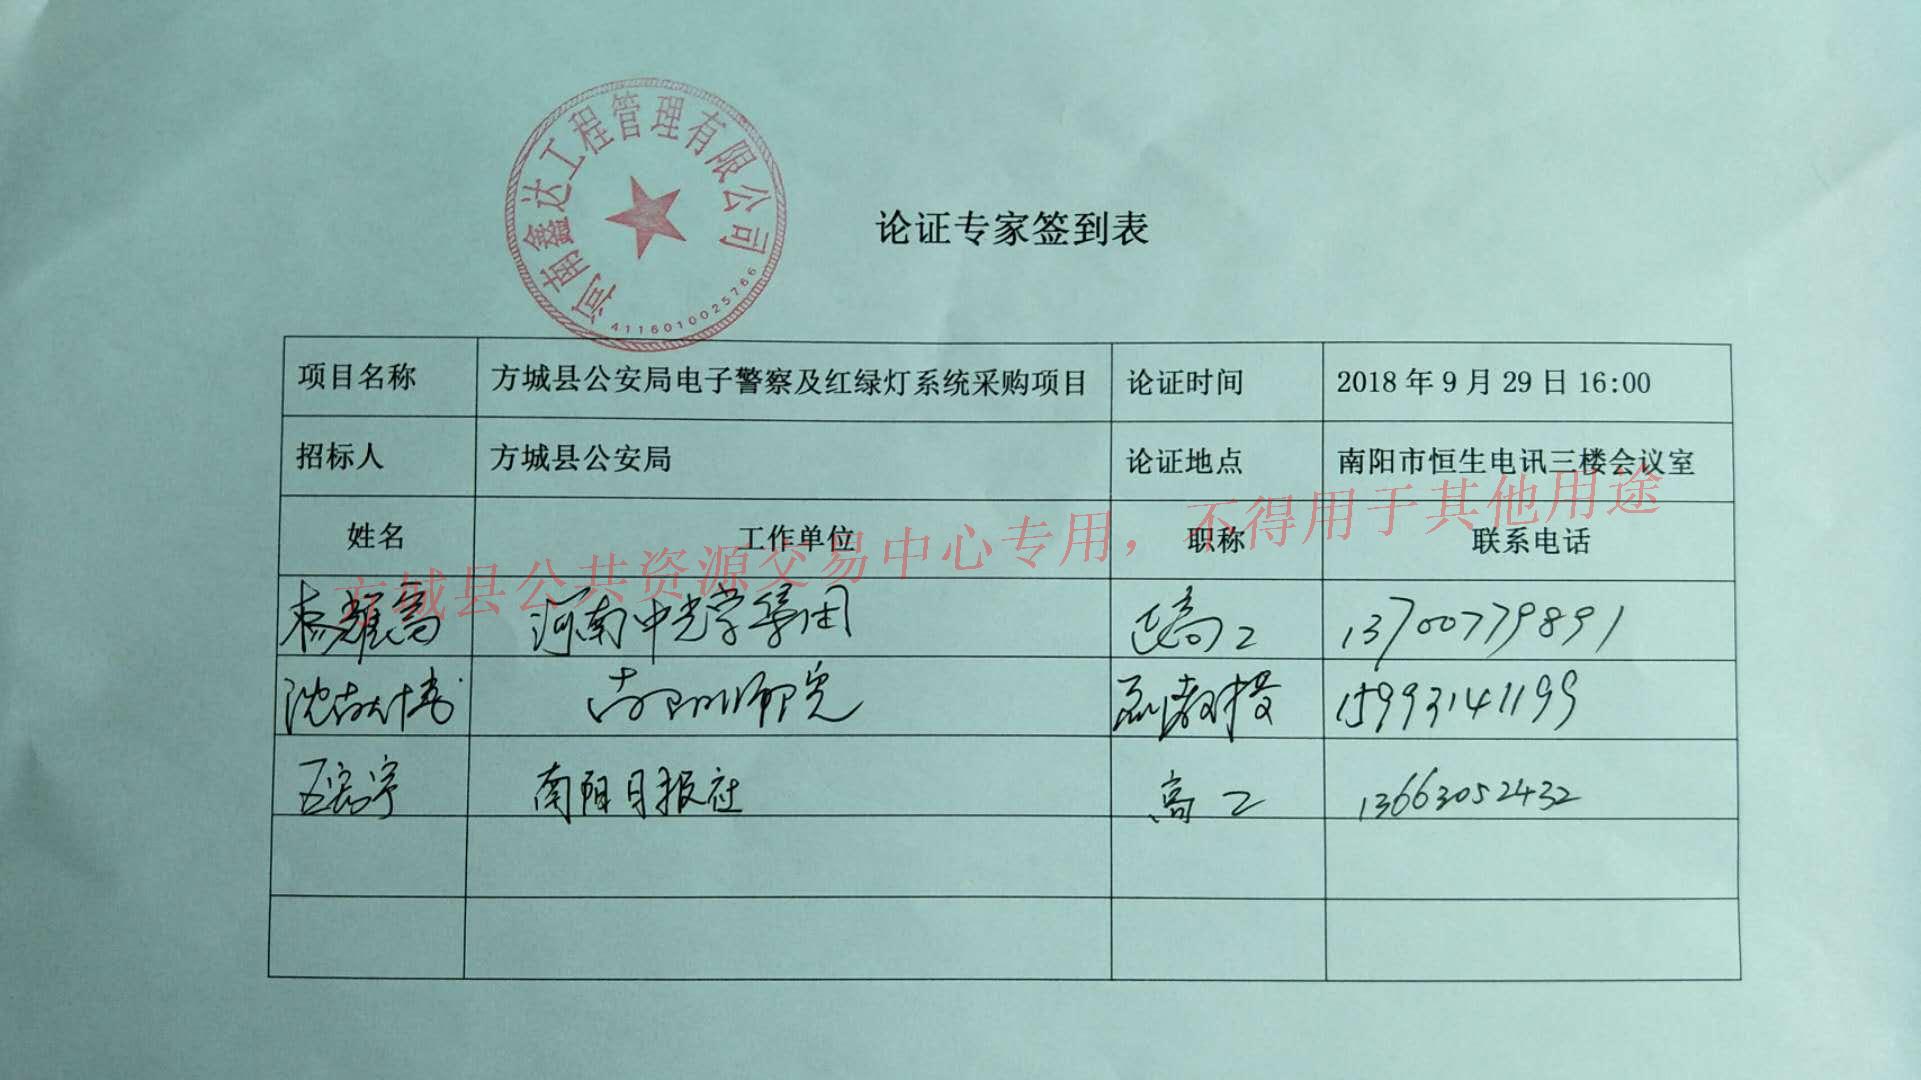 河南鑫达工程管理有限公司
4116010025766
论证专家签到表
项目名称 方城县公安局电子警察及红绿灯系统采购项目 论证时间 2018 年 9 月 29 日 16:00
招标人 方城县公安局 论证地点 南阳市恒生电讯三楼会议室
方城县公共资源交易中心专用，不得用于其他用途
姓名 工作单位 职称 联系电话
杨耀高 河南中光学集团 正高工 13700779891
沈 南阳师院 副教授 15993141199
南阳日报社 高工 13663052432